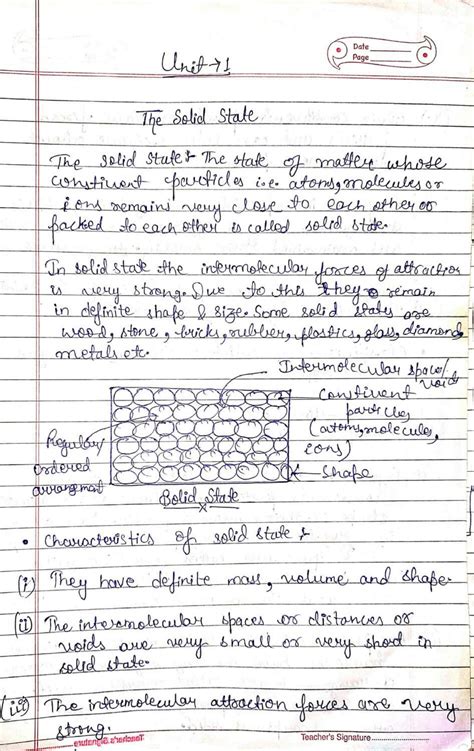 Date
Page
Unit → 1
The Solid State
The solid state :- The state of matter whose
constiuent particles i.e. atoms, molecules or
ions remains very close to each other or
packed to each other is called solid state.
In solid state the intermolecular forces of attraction
is very strong. Due to this they remain
in definite shape & size. Some solid states are
wood, stone, bricks, rubber, plastics, glass, diamond,
metals etc.
Intermolecular space/
voids
constiuent
particles
(atoms, molecules,
ions)
Regular/
ordered
arrangement
shape
Solid State
• Characteristics of solid state :-
(i) They have definite mass, volume and shape.
(ii) The intermolecular spaces or distances or
voids are very small or very short in
solid state.
(iii) The intermolecular attraction forces are very
strong.
Teacher's Signature